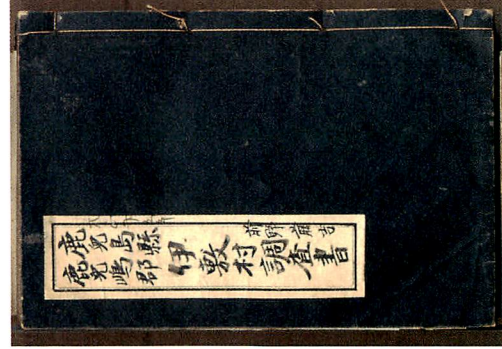 鹿児島縣
鹿児嶋郡
伊敷村調査書